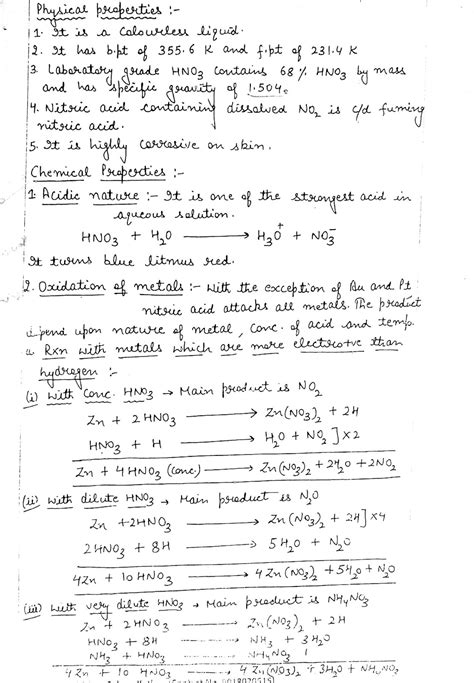 Physical properties :-
1. It is a Colourless liquid.
2. It has b.pt of 355.6 K and f.pt of 231.4 K
3. Laboratory grade HNO3 contains 68 % HNO3 by mass
and has specific gravity of 1.504.
4. Nitric acid containing dissolved NO2 is c/d fuming
nitric acid.
5. It is highly corrosive on skin.
Chemical Properties :-
1. Acidic nature :- It is one of the strongest acid in
aqueous solution.
HNO3 + H2O ⟶ H3O+ + NO3-
It turns blue litmus red.
2. Oxidation of metals :- With the exception of Au and Pt
nitric acid attacks all metals. The product
depend upon nature of metal, conc. of acid and temp.
a. Rxn with metals which are more electro+ve than
hydrogen :-
(i) with Conc. HNO3 → Main product is NO2
Zn + 2HNO3 ⟶ Zn(NO3)2 + 2H
HNO3 + H ⟶ H2O + NO2 ] x2
Zn + 4HNO3 (conc) ⟶ Zn(NO3)2 + 2H2O + 2NO2
(ii) with dilute HNO3 → Main product is N2O
Zn + 2HNO3 ⟶ Zn(NO3)2 + 2H ] x4
2HNO3 + 8H ⟶ 5H2O + N2O
4Zn + 10HNO3 ⟶ 4Zn(NO3)2 + 5H2O + N2O
(iii) with very dilute HNO3 → Main product is NH4NO3
Zn + 2HNO3 ⟶ Zn(NO3)2 + 2H
HNO3 + 8H ⟶ NH3 + 3H2O
NH3 + HNO3 ⟶ NH4NO3
4Zn + 10 HNO3 ⟶ 4Zn(NO3)2 + 3H2O + NH4NO3